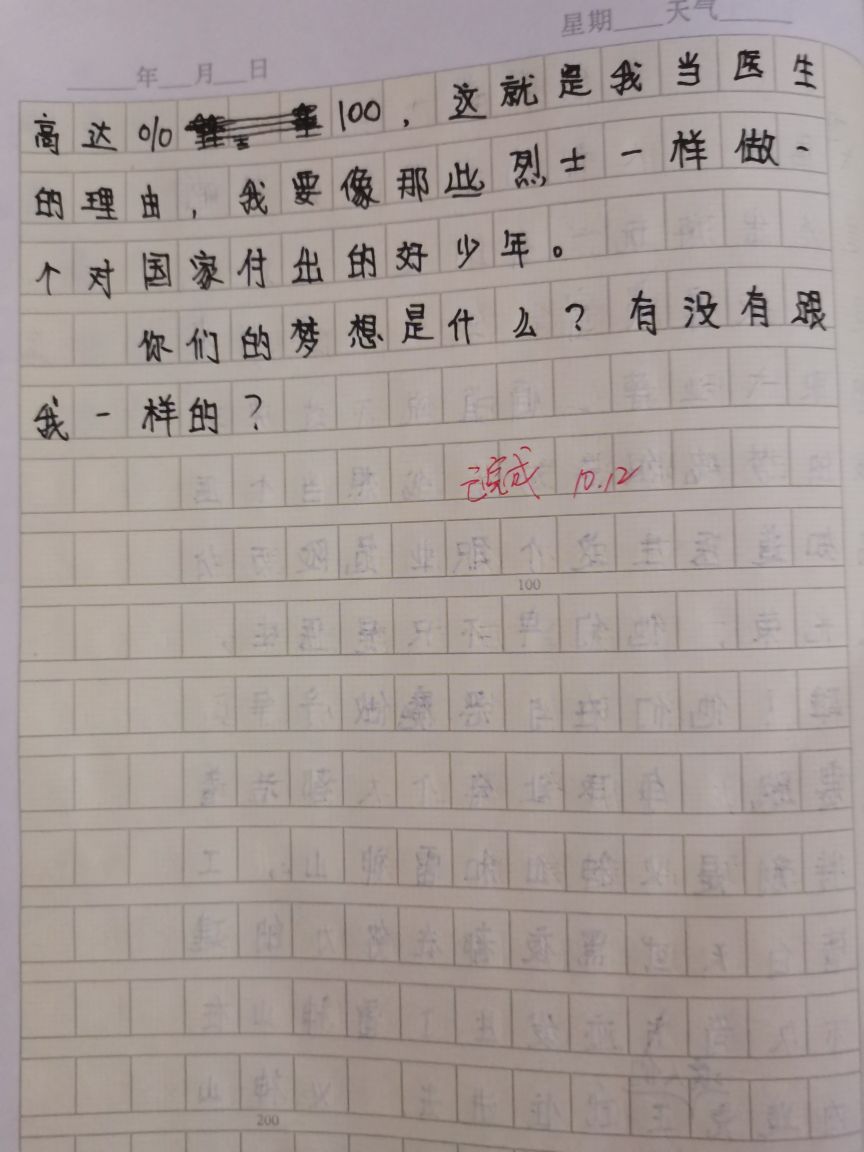 星期____天气____
____年__月__日
高达%100，这就是我当医生
的理由，我要像那些烈士一样做一
个对国家付出的好少年。
你们的梦想是什么？有没有跟
我一样的？
已完成 10.12
100
200